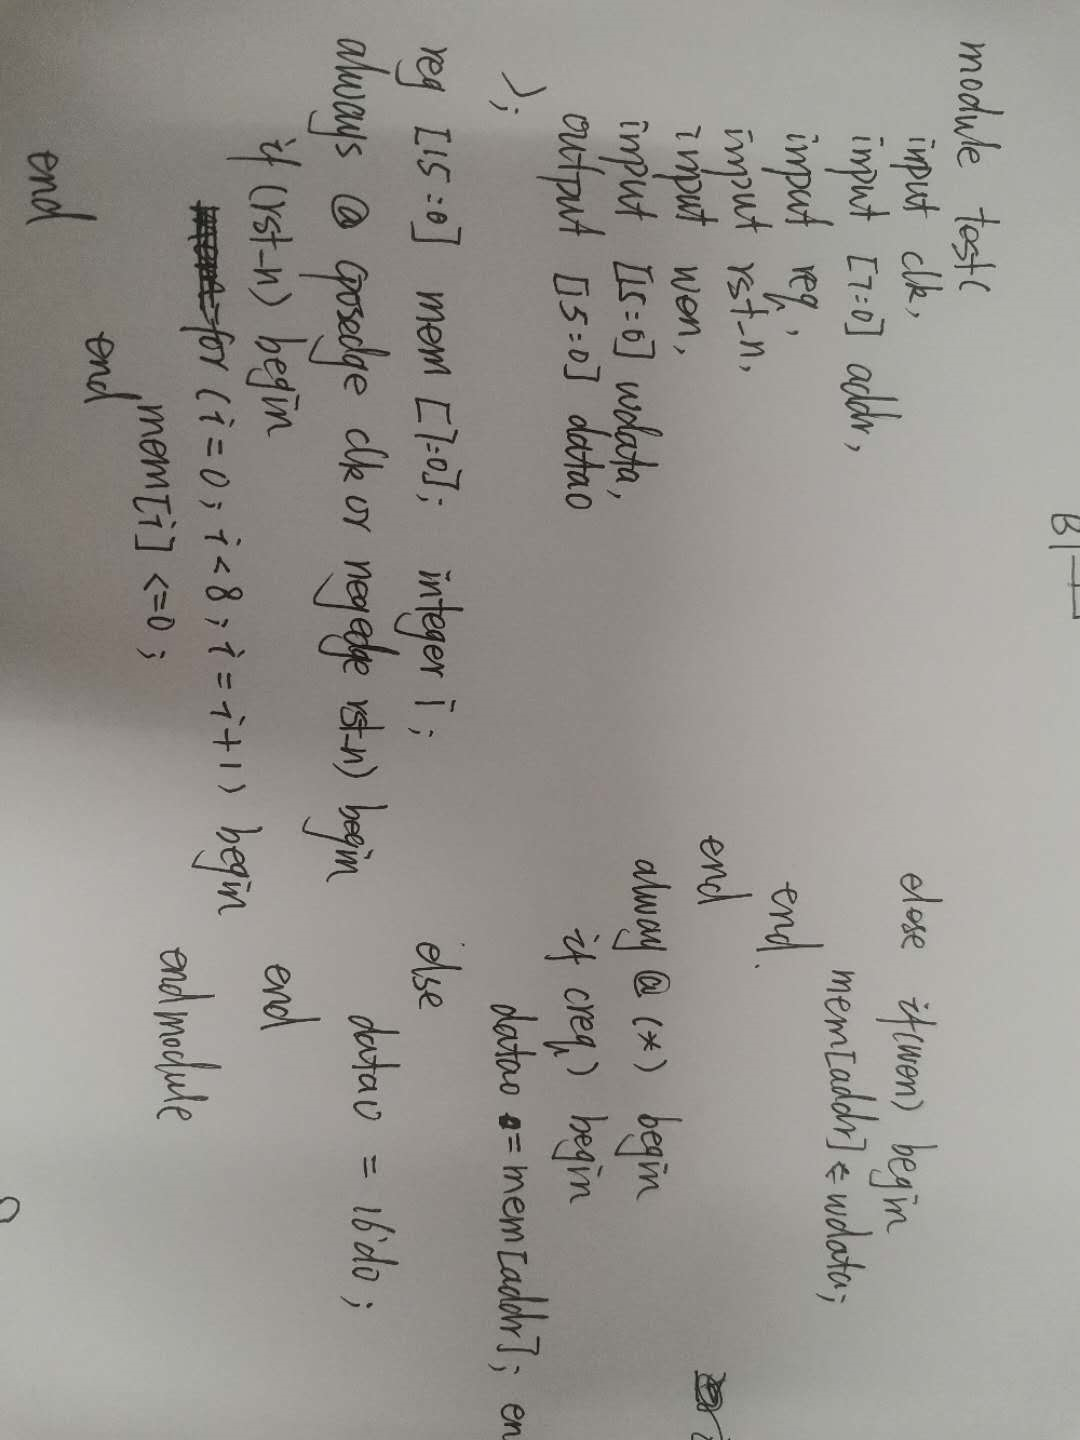 module test(
input clk,
input [7:0] addr,
input req,
input rst-n,
input wen,
input [15:0] wdata,
output [15:0] datao
);
reg [15:0] mem [7:0]; integer i;
always @ (posedge clk or negedge rst-n) begin
if (rst-n) begin
for (i=0; i<8; i=i+1) begin
mem[i] <=0;
end
end
else if(wen) begin
mem[addr] <= wdata;
end.
end
alway @ (*) begin
if (req) begin
datao = mem[addr]; en
else
datao = 16'd0;
end
endmodule